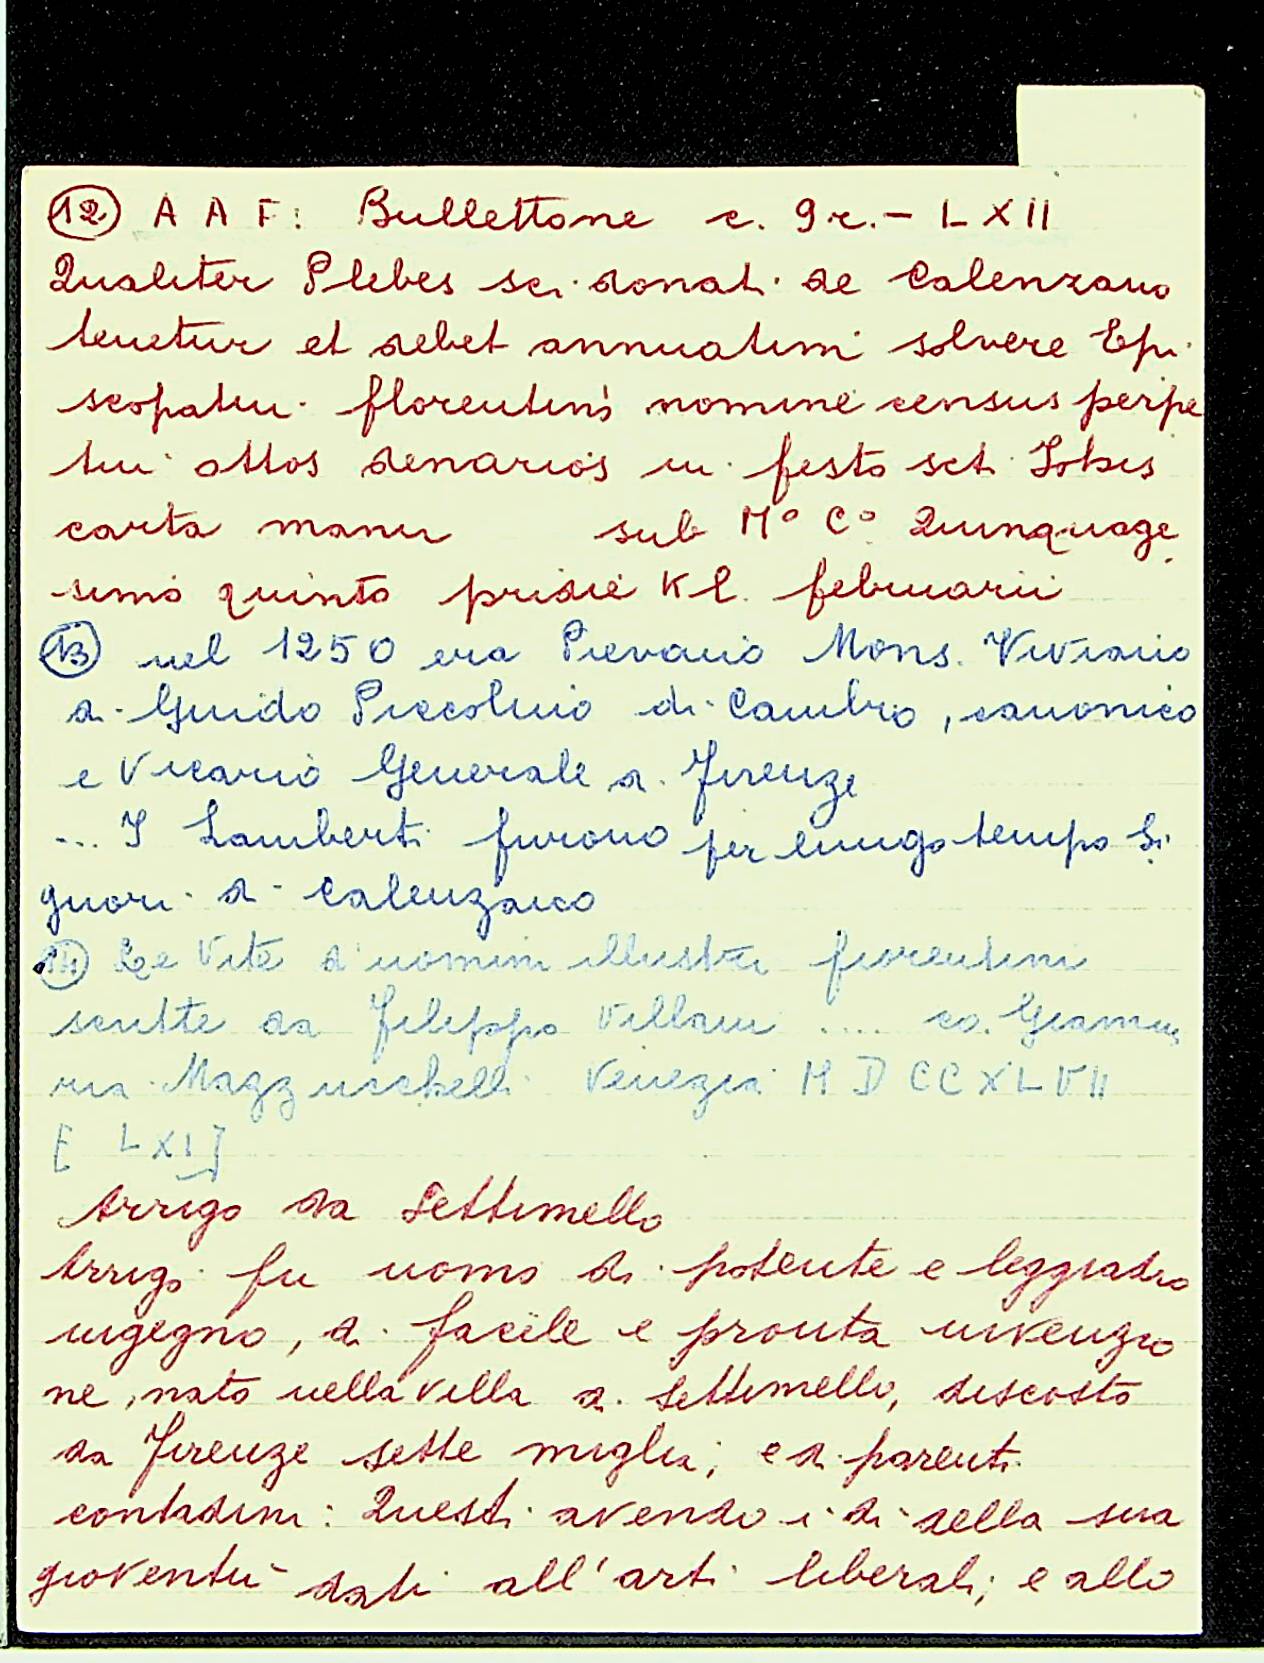 12 A A F: Bullettone c. 9 r. - LXII
Qualiter Plebes sci. donati de Calenzano
tenetur et debet annuatim solvere Epi
scopatui florentino nomine census perpe
tui ottos denarios in festo scti
carta manu sub M° C° Quinquage
simo quinto pridie Kl. februarii
13 nel 1250 era Pievano Mons. Viviano
di Guido Piccolino di Cambio, canonico
e Vicario Generale di Firenze
... I Lamberti furono per lungo tempo Si
gnori di Calenzano
14 Le Vite d'uomini illustri fiorentini
scritte da Filippo Villani .... co. Giamma
ria Mazzucchelli Venezia M D CC XL VII
[ LXI ]
Arrigo da Settimello
Arrigo fu uomo di potente e leggiadro
ingegno, di facile e pronta invenzio
ne, nato nella villa di Settimello, discosto
da Firenze sette miglia; e di parenti
contadini: Questi avendo i dì della sua
gioventù dati all'arti liberali; e allo